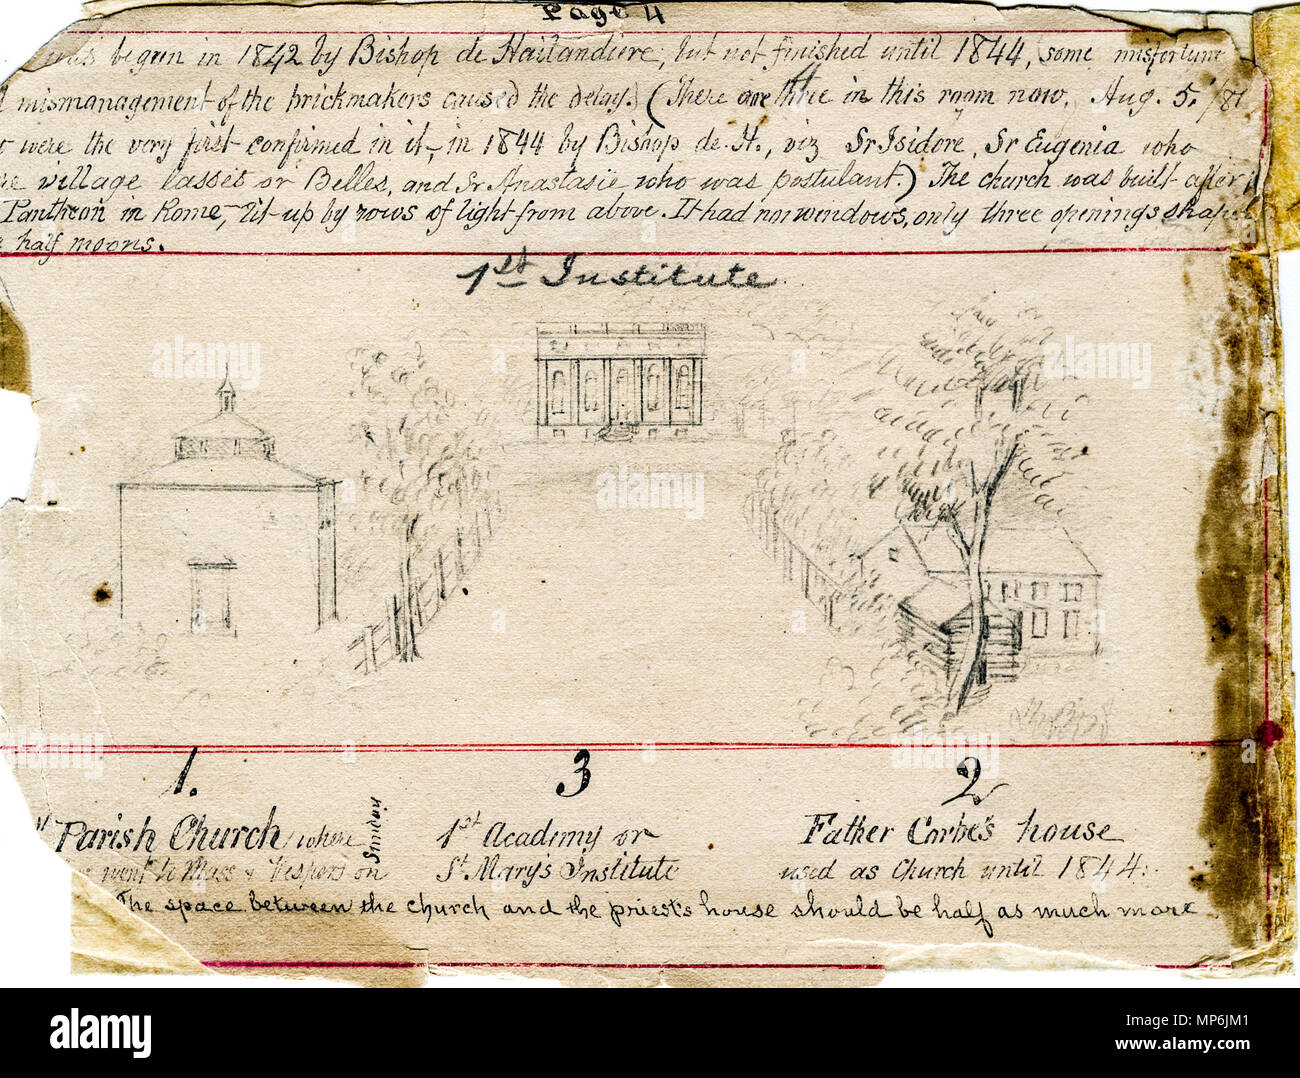 Page 4
was begun in 1842 by Bishop de Hailandiere, but not finished until 1844, (some misfortune
mismanagement of the brickmakers caused the delay.) (There are three in this room now, Aug. 5, /81
were the very first confirmed in it, in 1844 by Bishop de H., viz Sr Isidore, Sr Eugenia who
village lasses or Belles, and Sr Anastasie who was postulant.) The church was built after
Pantheon in Rome, lit up by rows of light from above. It had no windows, only three openings shape
half moons.
1st Institute
1. 3 2
Parish Church (where 1st Academy or Father Corbe's house
went to Mass & Vespers on Sunday St Mary's Institute used as Church until 1844.
The space between the church and the priest's house should be half as much more.
alamy
alamy
Image ID: MP6JM1
www.alamy.com